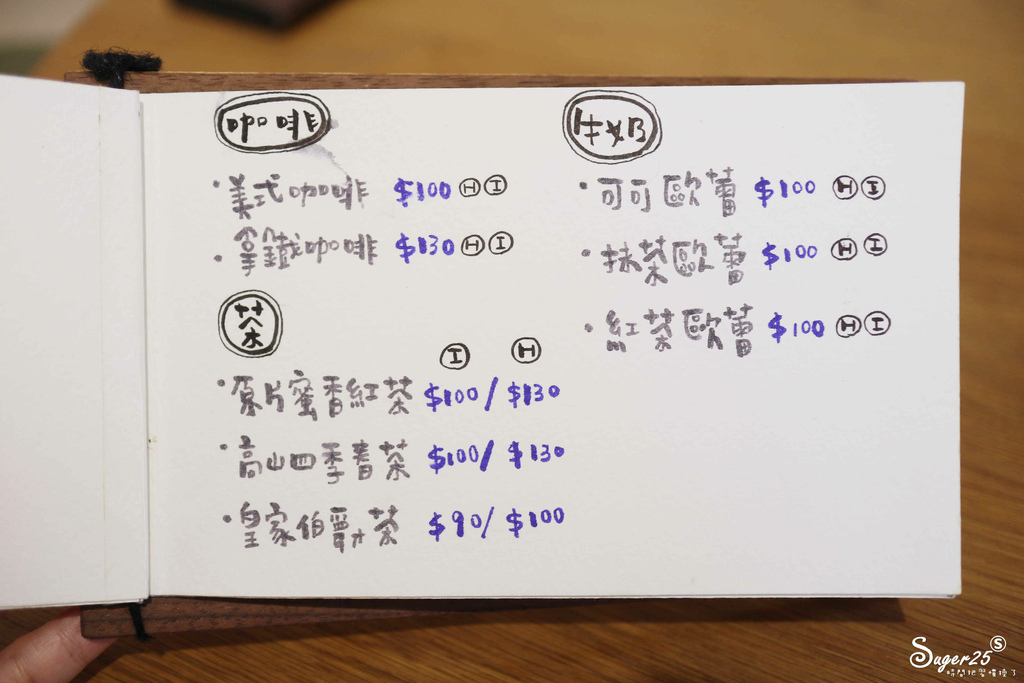 咖啡
・美式咖啡 $100 Ⓗ Ⓘ
・拿鐵咖啡 $130 Ⓗ Ⓘ
茶
Ⓘ Ⓗ
・原片蜜香紅茶 $100 / $130
・高山四季春茶 $100 / $130
・皇家伯爵茶 $90 / $100
牛奶
・可可歐蕾 $100 Ⓗ Ⓘ
・抹茶歐蕾 $100 Ⓗ Ⓘ
・紅茶歐蕾 $100 Ⓗ Ⓘ
Suger25 Ⓢ
時間把習慣換了